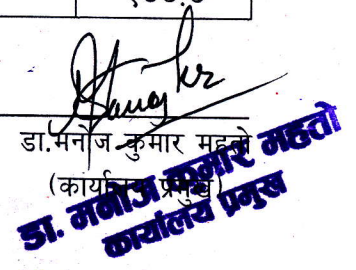 डा.मनोज कुमार महतो
(कार्यालय प्रमुख)
डा. मनोज कुमार महतो
कार्यालय प्रमुख